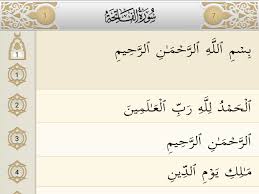 1 سُورَةُ الفَاتِحَةِ 7
1 بِسْمِ ٱللَّهِ ٱلرَّحْمَـٰنِ ٱلرَّحِيمِ
2 ٱلْحَمْدُ لِلَّهِ رَبِّ ٱلْعَـٰلَمِينَ
3 ٱلرَّحْمَـٰنِ ٱلرَّحِيمِ
4 مَـٰلِكِ يَوْمِ ٱلدِّينِ